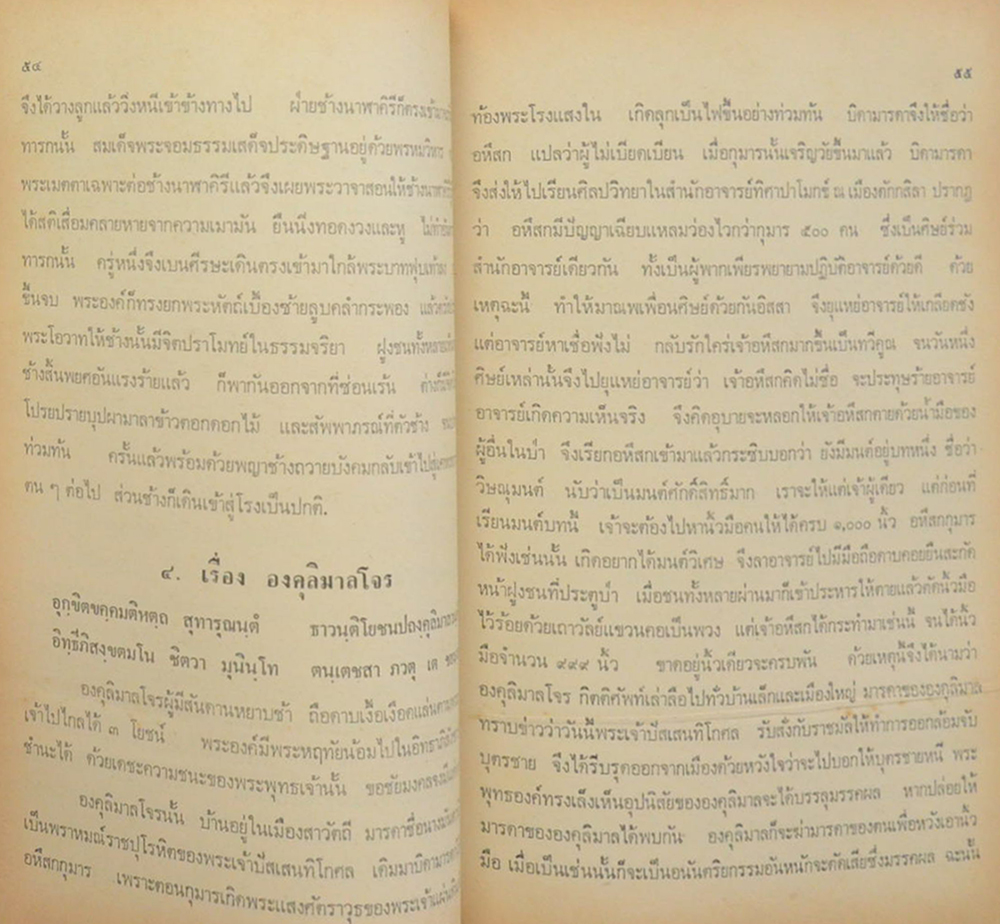 ๕๔
จึงได้วางลูกแล้ววิ่งหนีเข้าข้างทางไป ฝ่ายช้างนาฬาคิรีก็ตรงเข้า
ทารกนั้น สมเด็จพระจอมธรรมเสด็จประดิษฐานอยู่ด้วยพรหมวิหาร
พระเมตตาเฉพาะต่อช้างนาฬาคิรีแล้วจึงเผยพระวาจาสอนให้ช้าง
ได้สติเสื่อมคลายหายจากความเมามัน ยืนนิ่งทอดงวงและหู ไม่ทำ
ทารกนั้น ครู่หนึ่งจึงเบนศีรษะเดินตรงเข้ามาใกล้พระบาทพุ่มเท้า
ขึ้นจบ พระองค์ก็ทรงยกพระหัตถ์เบื้องซ้ายลูบคลำกระพอง แล้ว
พระโอวาทให้ช้างนั้นมีจิตปราโมทย์ในธรรมจริยา ฝูงชนทั้งหลาย
ช้างสิ้นพยศอันแรงร้ายแล้ว ก็พากันออกจากที่ซ่อนเร้น ต่างก็
โปรยปรายบุปผามาลาข้าวตอกดอกไม้ และสัพพาภรณ์ที่ตัวช้าง
ท่วมทัน ครั้นแล้วพร้อมด้วยพญาช้างถวายบังคมกลับเข้าไปสู่
ตน ๆ ต่อไป ส่วนช้างก็เดินเข้าสู่โรงเป็นปกติ.
๔. เรื่อง องคุลิมาลโจร
อุกฺขิตขคฺคมติหตฺถ สุทารุณนฺตํ ธาวนฺติโยชนปถงฺคุลิมาล
อิทฺธีภิสงฺขตมโน ชิตวา มุนินฺโท ตนฺเตชสา ภวตุ เต
องคุลิมาลโจรผู้มีสันดานหยาบช้า ถือดาบเงื้อเงือดแล่นตาม
เจ้าไปไกลได้ ๓ โยชน์ พระองค์มีพระหฤทัยน้อมไปในอิทธา
ชำนะได้ ด้วยเดชะความชนะของพระพุทธเจ้านั้น ขอชัยมงคลจง
องคุลิมาลโจรนั้น บ้านอยู่ในเมืองสาวัตถี มารดาชื่อนาง
เป็นพราหมณ์ราชปุโรหิตของพระเจ้าปัสเสนทิโกศล เดิมมาบิดามารดา
อหึสกกุมาร เพราะตอนกุมารเกิดพระแสงศัตราวุธของพระเจ้าแผ่นดิน
๕๕
ท้องพระโรงแสงใน เกิดลุกเป็นไฟขึ้นอย่างท่วมทัน บิดามารดาจึงให้ชื่อว่า
อหึสก แปลว่าผู้ไม่เบียดเบียน เมื่อกุมารนั้นเจริญวัยขึ้นมาแล้ว บิดามารดา
จึงส่งให้ไปเรียนศิลปวิทยาในสำนักอาจารย์ทิศาปาโมกข์ ณ เมืองตักกสิลา ปรากฏ
ว่า อหึสกมีปัญญาเฉียบแหลมว่องไวกว่ากุมาร ๕๐๐ คน ซึ่งเป็นศิษย์ร่วม
สำนักอาจารย์เดียวกัน ทั้งเป็นผู้พากเพียรพยายามปฏิบัติอาจารย์ด้วยดี ด้วย
เหตุฉะนี้ ทำให้มาณพเพื่อนศิษย์ด้วยกันอิสสา จึงยุแหย่อาจารย์ให้เกลียดชัง
แต่อาจารย์หาเชื่อฟังไม่ กลับรักใคร่เจ้าอหึสกมากขึ้นเป็นทวีคูณ จนวันหนึ่ง
ศิษย์เหล่านั้นจึงไปยุแหย่อาจารย์ว่า เจ้าอหึสกคิดไม่ซื่อ จะประทุษร้ายอาจารย์
อาจารย์เกิดความเห็นจริง จึงคิดอุบายจะหลอกให้เจ้าอหึสกตายด้วยน้ำมือของ
ผู้อื่นในป่า จึงเรียกอหึสกเข้ามาแล้วกระซิบบอกว่า ยังมีมนต์อยู่บทหนึ่ง ชื่อว่า
วิษณุมนต์ นับว่าเป็นมนต์ศักดิ์สิทธิ์มาก เราจะให้แต่เจ้าผู้เดียว แต่ก่อนที่
เรียนมนต์บทนี้ เจ้าจะต้องไปหานิ้วมือคนให้ได้ครบ ๑,๐๐๐ นิ้ว อหึสกกุมาร
ได้ฟังเช่นนั้น เกิดอยากได้มนต์วิเศษ จึงลาอาจารย์ไปมีมือถือดาบคอยยืนสะกัด
หน้าฝูงชนที่ประตูป่า เมื่อชนทั้งหลายผ่านมาก็เข้าประหารให้ตายแล้วตัดนิ้วมือ
ไว้ร้อยด้วยเถาวัลย์แขวนคอเป็นพวง แต่เจ้าอหึสกได้กระทำมาเช่นนี้ จนได้นิ้ว
มือจำนวน ๙๙๙ นิ้ว ขาดอยู่นิ้วเดียวจะครบพัน ด้วยเหตุนี้จึงได้นามว่า
องคุลิมาลโจร กิตติศัพท์เล่าลือไปทั่วบ้านเล็กและเมืองใหญ่ มารดาขององคุลิมาล
ทราบข่าวว่าวันนี้พระเจ้าปัสเสนทิโกศล รับสั่งกับราชมัลให้ทำการออกล้อมจับ
บุตรชาย จึงได้รีบรุดออกจากเมืองด้วยหวังใจว่าจะไปบอกให้บุตรชายหนี พระ
พุทธองค์ทรงเล็งเห็นอุปนิสัยขององคุลิมาลจะได้บรรลุมรรคผล หากปล่อยให้
มารดาขององคุลิมาลได้พบกัน องคุลิมาลก็จะฆ่ามารดาของตนเพื่อหวังเอานิ้ว
มือ เมื่อเป็นเช่นนั้นก็จะเป็นอนันตริยกรรมอันหนักจะตัดเสียซึ่งมรรคผล ฉะนั้น